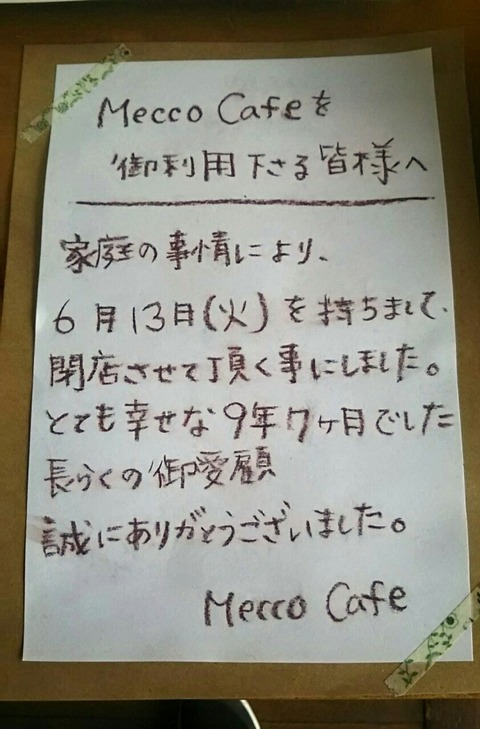 Mecco Cafeを
御利用下さる皆様へ
家庭の事情により、
6月13日(火)を持ちまして、
閉店させて頂く事にしました。
とても幸せな9年7ヶ月でした
長らくの御愛顧
誠にありがとうございました。
Mecco Cafe